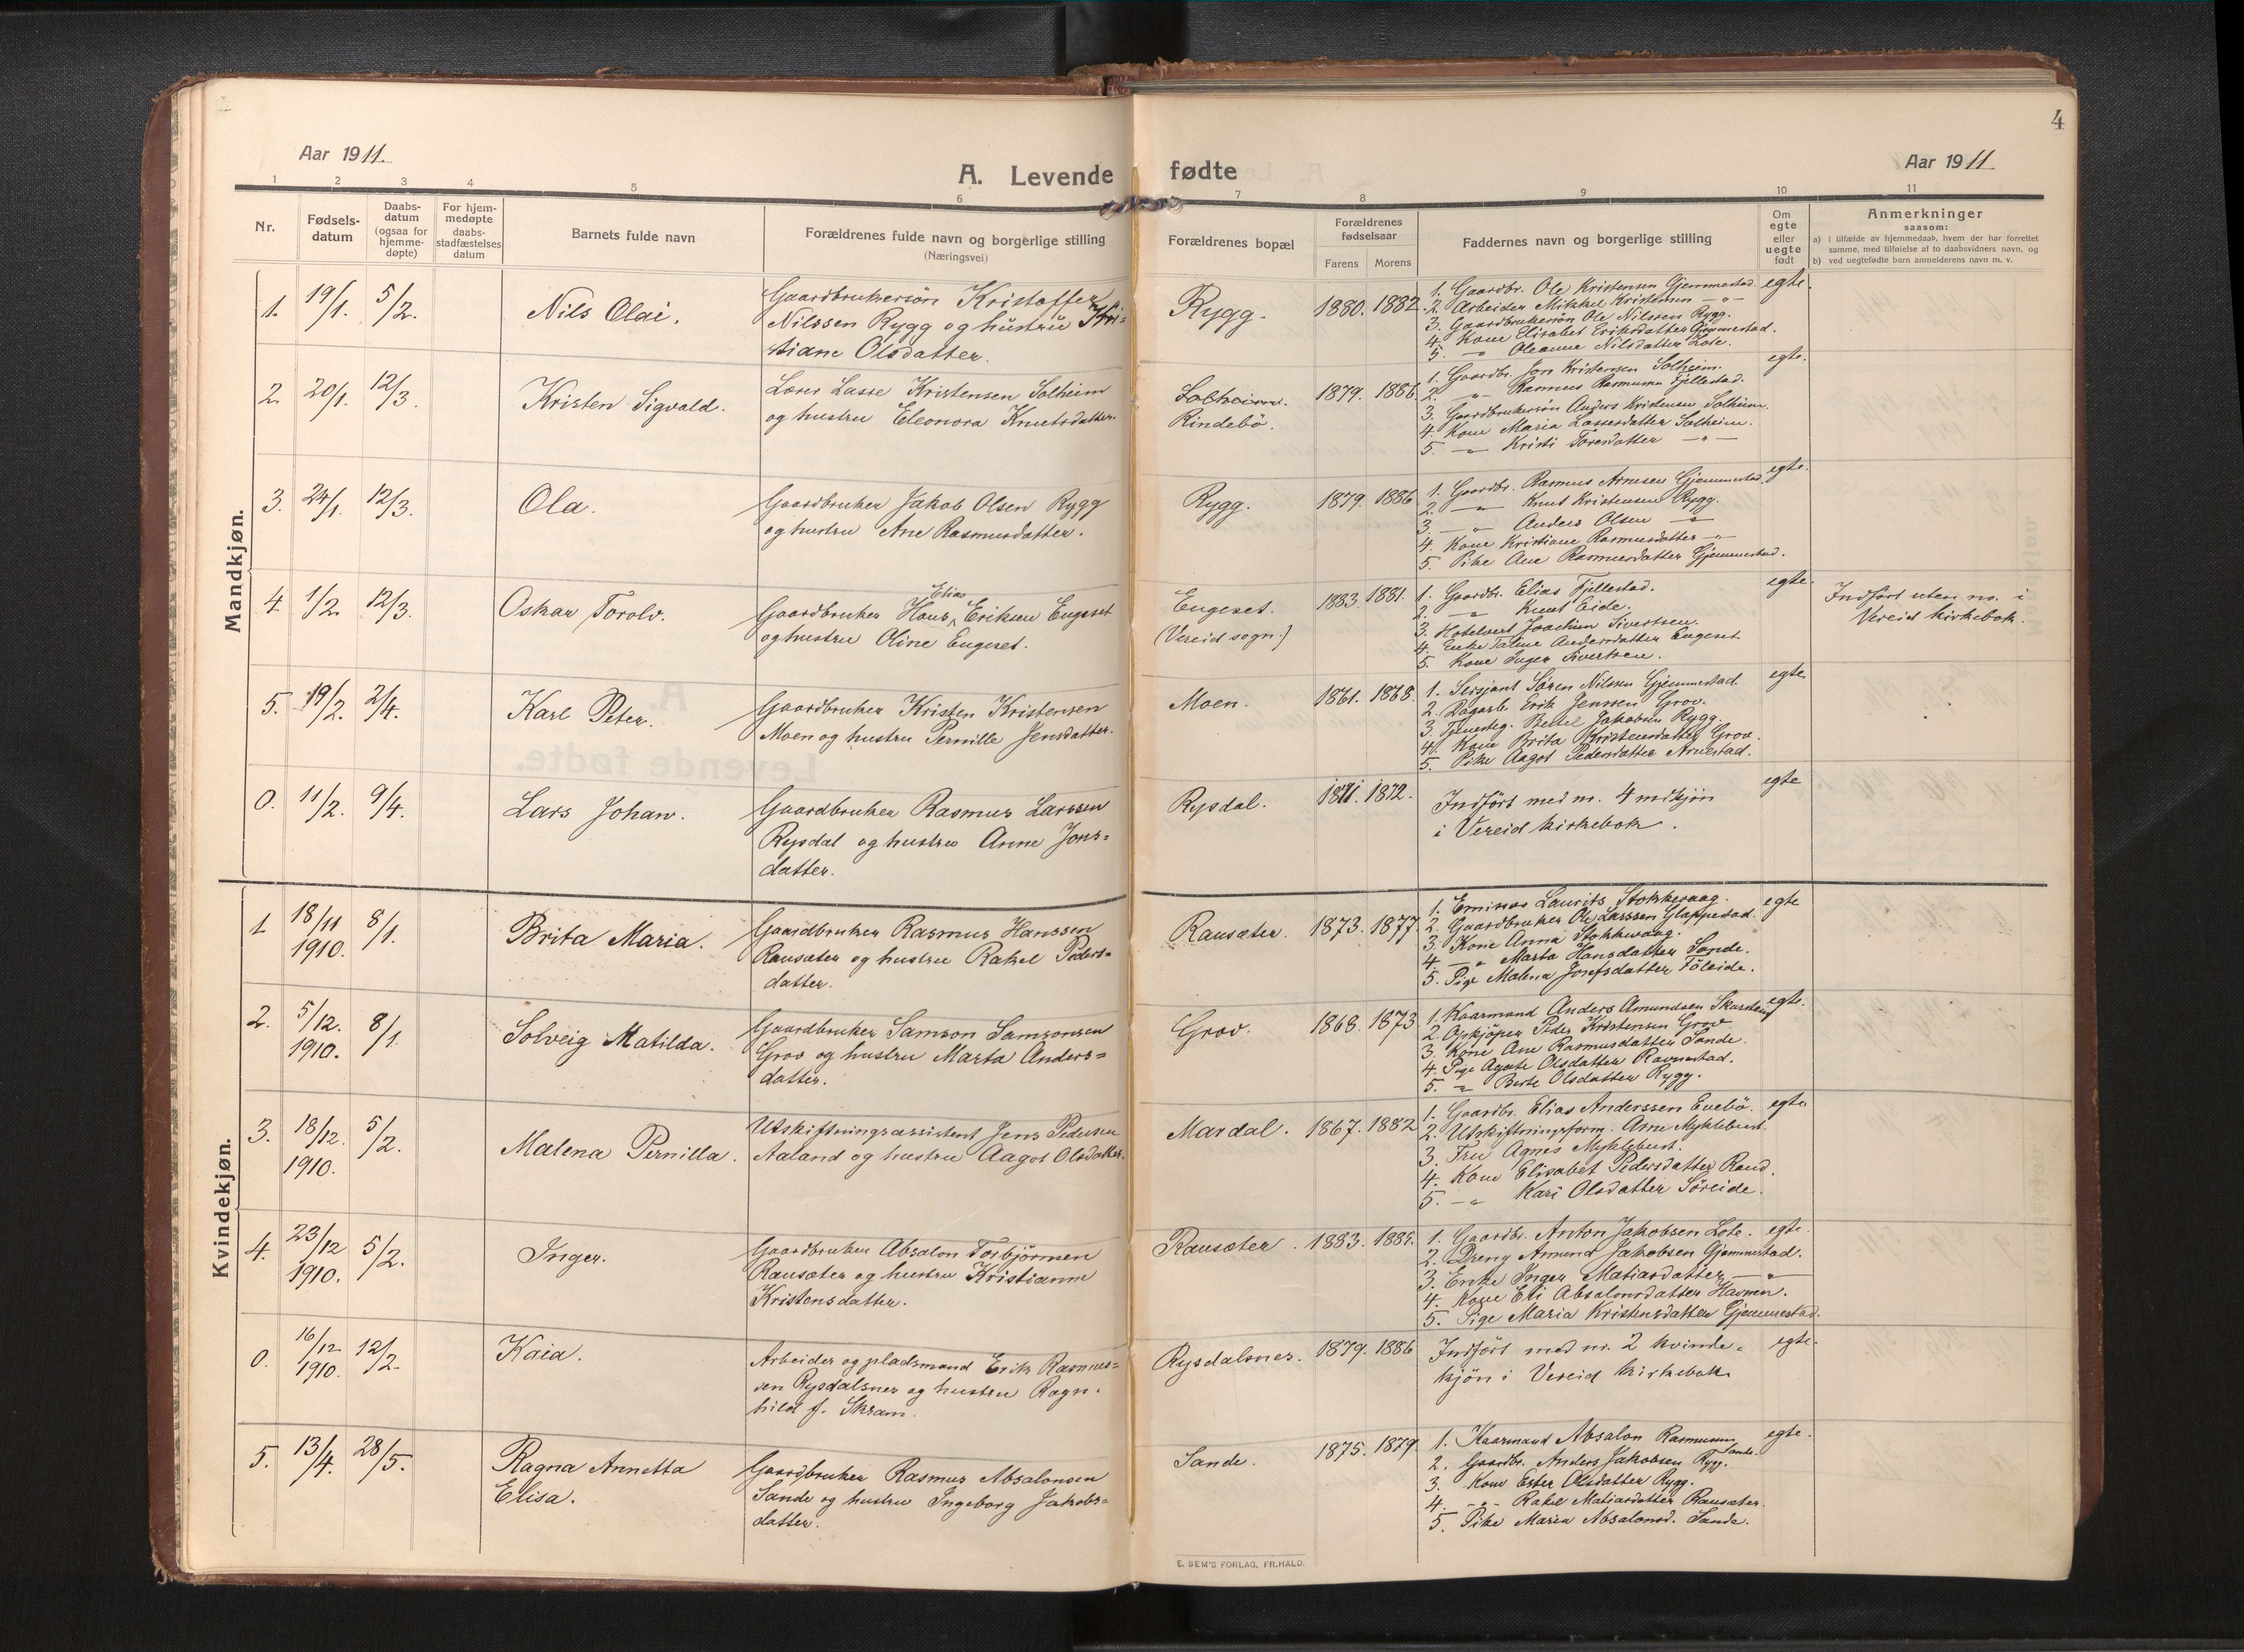 4
Aar 1911.
A. Levende fødte
Aar 1911
1 2 3 4 5 6 7 8 9 10 11
Nr.
Fødsels-
datum
Daabs-
datum
(ogsaa for
hjemme-
døpte)
For hjem-
medøpte
daabs-
stadfæstelses
datum
Barnets fulde navn
Forældrenes fulde navn og borgerlige stilling
(Næringsvei)
Forældrenes bopæl
Forældrenes
fødselsaar
Farens Morens
Faddernes navn og borgerlige stilling
Om
egte
eller
uegte
født
Anmerkninger
saasom:
a) i tilfælde av hjemmedaab, hvem der har forrettet
samme, med tilføielse af to daabsvidners navn, og
b) ved uegtefødte barn anmelderens navn m. v.
Mandkjøn.
1. 19/1. 5/2.
Nils Olai.
Gaardbrukersön Kristoffer
Nilssen Rygg og hustru Kri-
stiane Olsdatter.
Rygg.
1880. 1882.
1. Gaardbr. Ole Kristensen Gjemmestad
2. Arbeider Mikkel Kristensen - " -
3. Gaardbrukersön Ole Nilssen Rygg.
4. Kone Elisabet Eriksdatter Gjemmestad.
5. - " Oleanne Nilsdatter Lote.
egte.
2. 20/1. 12/3.
Kristen Sigvald.
Lærer Lasse Kristensen Solheim
og hustru Eleonora Knutsdatter.
Solheim.
Rindebö.
1879. 1886.
1. Gaardbr. Jon Kristensen Solheim.
2. - " - Rasmus Rasmussen Fjellestad.
3. Gaardbrukersön Anders Kristensen Solheim.
4. Kone Maria Lassesdatter Solheim.
5. - " Kristi Toresdatter - " -
egte.
3. 24/1. 12/3.
Ola.
Gaardbruker Jakob Olsen Rygg
og hustru Ane Rasmusdatter.
Rygg.
1879. 1886
1. Gaardbr. Rasmus Arnesen Gjemmestad
2. - " Knut Kristensen Rygg.
3. - " - Anders Olsen - "
4. Kone Kristiane Rasmusdatter - "
5. Pike Ane Rasmusdatter Gjemmestad.
egte.
4. 1/2. 12/3.
Oskar Torolv.
Elias
Gaardbruker Hans Eriksen Engeset
og hustru Oline Engeset.
Engeset.
(Vereid sogn.)
1883. 1881.
1. Gaardbr. Elias Fjellestad.
2. - " Knut Eide.
3. Hotelvert Joachim Sivertsen.
4. Enke Taline Andersdatter Engeset
5. Kone Inger Sivertsen.
egte.
Indfört uten no. i
Vereid kirkebok.
5. 19/2. 2/4.
Karl Peter.
Gaardbruker Kristen Kristensen
Moen og hustru Pernille Jensdatter.
Moen.
1861. 1868.
1. Sersjant Sören Nilssen Gjemmestad
2. Dagarb. Erik Jenssen Grov.
3. Tjenesteg. Bertel Jakobsen Rygg.
4. Kone Brita Kristensdatter Grov.
5. Pike Aagot Pedersdatter Arnestad.
egte.
0. 11/2. 9/4.
Lars Johan.
Gaardbruker Rasmus Larssen
Rysdal og hustru Anne Jons=
datter.
Rysdal.
1871. 1872.
Indfört med nr. 4 mdkjön
i Vereid kirkebok.
egte
Kvindekjøn.
1 18/11 1910. 8/1.
Brita Maria.
Gaardbruker Rasmus Hanssen
Rausæter og hustru Rakel Peders=
datter.
Rausæter.
1873. 1877.
1. Laurits Stokkevaag.
2. Gaardbruker Ole Larssen Glappestad.
3. Kone Anna Stokkevaag.
4. - " Marta Hansdatter Sande.
5. Pige Malena Josefsdatter Föleide.
egte
2. 5/12. 1910. 8/1.
Solveig Matilda.
Gaardbruker Samson Samsonsen
Grov og hustru Marta Anders=
datter.
Grov.
1868. 1873
1. Kaarmand Anders Amundsen Skarstein
2. Opkjöper Peder Kristensen Grov
3. Kone Ane Rasmusdatter Sande.
4. Pige Agate Olsdatter Ravnestad.
5. - " Berte Olsdatter Rygg.
egte.
3. 18/12. 1910. 5/2.
Malena Pernilla.
Utskiftningsassistent Jens Pedersen
Aaland og hustru Aagot Olsdatter.
Mardal.
1867. 1882
1. Gaardbr. Elias Anderssen Evebö.
2. Utskiftningsform. Arne Myklebust.
3. Fru Agnes Myklebust.
4. Kone Elisabet Pedersdatter Rand.
5. - " Kari Olsdatter Söreide.
egte
4. 23/12 1910. 5/2.
Inger.
Gaardbruker Absalon Torbjörnsen
Rausæter og hustru Kristianne
Kristensdatter.
Rausæter.
1883. 1885.
1. Gaardbr. Anton Jakobsen Lote.
2. Dreng Amund Jakobsen Gjemmestad.
3. Enke Inger Matiasdatter - " -
4. Kone Eli Absalonsdatter Havnen.
5. Pige Maria Kristensdatter Gjemmestad.
egte.
0. 16/12 1910. 12/2.
Kaia.
Arbeider og pladsmand Erik Rasmus=
sen Rysdalsnes og hustru Ragn-
hild f. Skram.
Rysdalsnes.
1879. 1886
Indfört med nr. 2 kvinde-
kjön i Vereid kirkebok
egte.
5. 13/4. 28/5.
Ragna Annetta
Elisa.
Gaardbruker Rasmus Absalonsen
Sande og hustru Ingeborg Jakobs=
datter.
Sande.
1875. 1879.
1. Kaarmand Absalon Rasmussen
Sande.
2. Gaardbr. Anders Jakobsen Rygg.
3. Kone Ester Olsdatter Rygg.
4. - " - Rakel Matiasdatter Rausæter.
5. Pike Maria Absalonsd. Sande.
egte.
E. SEM'S FORLAG, FR.HALD.